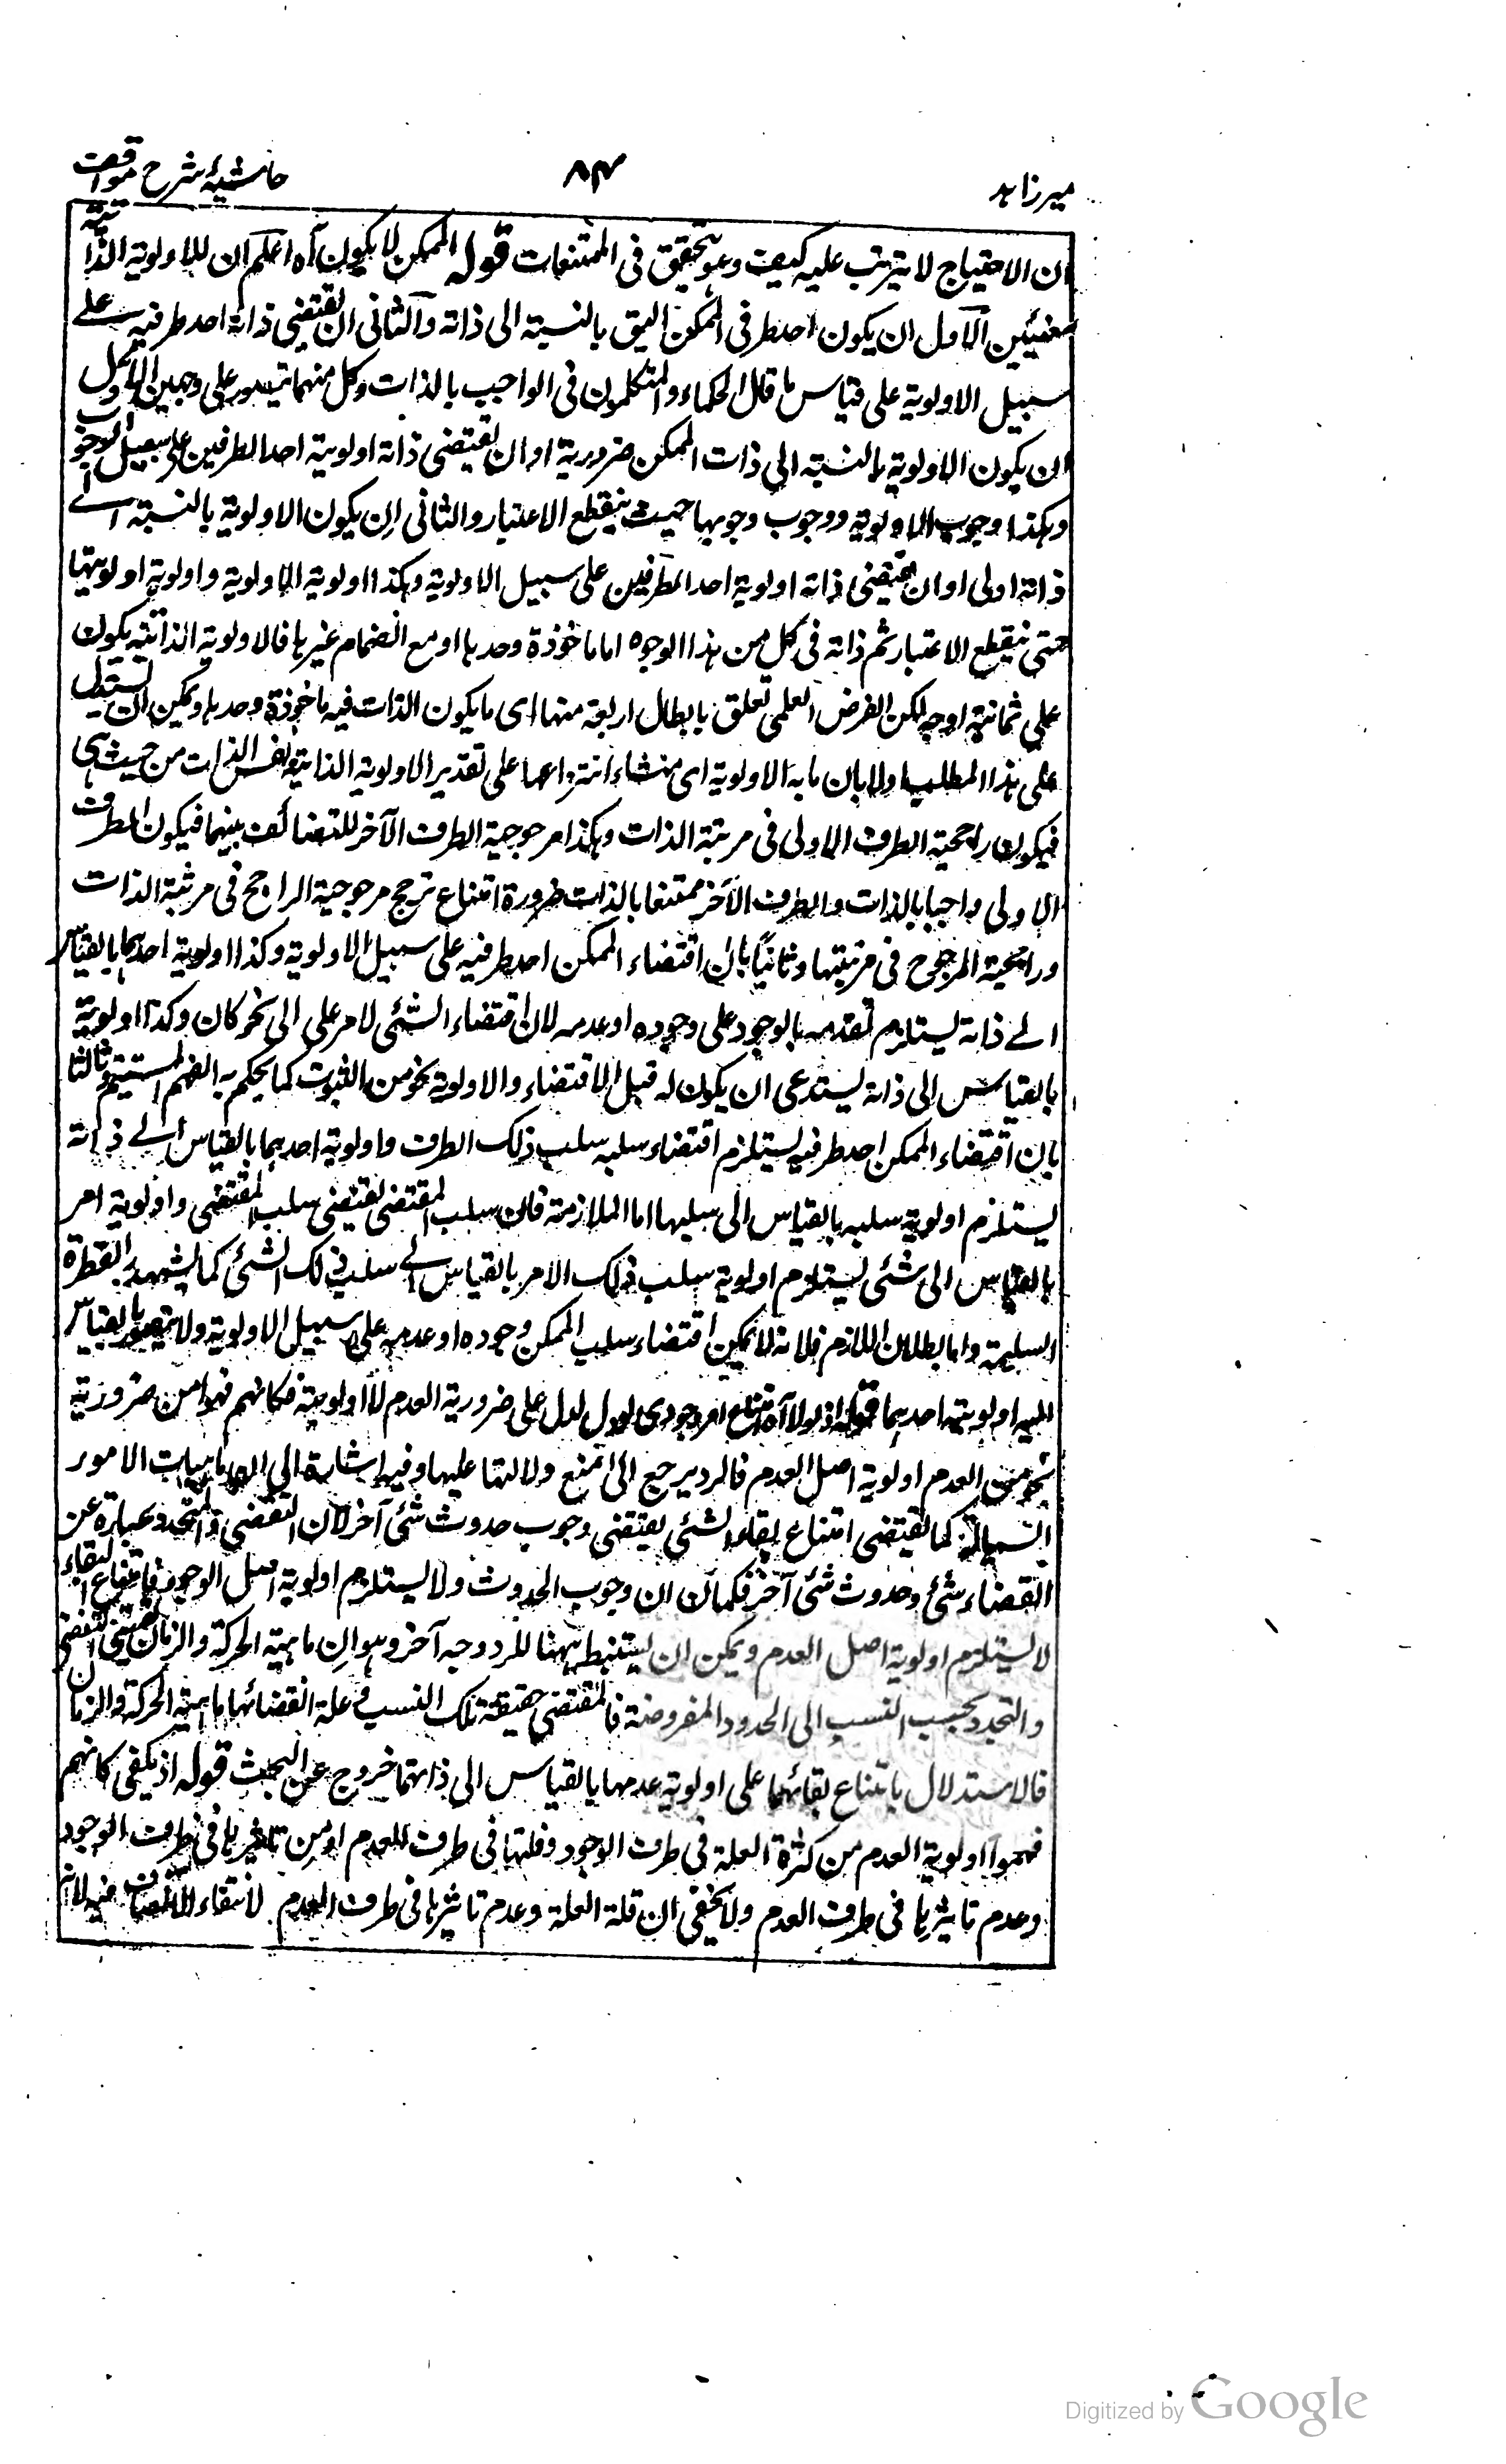 میرزاهد
۸۴
حاشیهٔ شرح مواقف
ان الاحتیاج لا یترتب علیه کیف وهو یتحقق فی الممتنعات قوله الممکن لا یکون آه اعلم ان للاولویة الذاتیة
معنیین الاول ان یکون احد طرفی الممکن الیق بالنسبة الی ذاته والثانی ان یقتضی ذاته احد طرفیه علے
سبیل الاولویة علی قیاس ما قال الحکماء والمتکلمون فی الواجب بالذات وکل منهما یتصور علی وجهین الاول
ان یکون الاولویة بالنسبة الی ذات الممکن ضروریة او ان یقتضی ذاته اولویة احد الطرفین علی سبیل الوجوب
وهکذا وجوب الاولویة ووجوب وجوبها حیث ینقطع الاعتبار والثانی ان یکون الاولویة بالنسبة الے
ذاته اولی او ان یقتضی ذاته اولویة احد الطرفین علی سبیل الاولویة وهکذا اولویة الاولویة واولویة اولویتها
حتی ینقطع الاعتبار ثم ذاته فی کل من هذا الوجوه اما ماخوذة وحدها او مع انضمام غیرها فالاولویة الذاتیة یکون
علی ثمانیة اوجه لکن الغرض العلمی تعلق بابطال اربعة منها ای ما یکون الذات فیه ماخوذة وحدها ویمکن ان یستدل
علی هذا المطلب اولا بان ما به الاولویة ای منشاء انتزاعها علی تقدیر الاولویة الذاتیة نفس الذات من حیث هی
فیکون راجحیة الطرف الاولی فی مرتبة الذات وهکذا مرجوحیة الطرف الآخر للتضائف بینهما فیکون الطرف
الاولی واجبا بالذات والطرف الآخر ممتنعا بالذات ضرورة امتناع ترجح مرجوحیة الراجح فی مرتبة الذات
وراجحیة المرجوح فی مرتبتها وثانیاً بان اقتضاء الممکن احد طرفیه علی سبیل الاولویة وکذا اولویة احدهما بالقیاس
الے ذاته یستلزم تقدمه بالوجود علی وجوده او عدمه لان اقتضاء الشئی لامر علی ای نحو کان وکذا اولویة
بالقیاس الی ذاته یستدعی ان یکون له قبل الاقتضاء والاولویة نحو من الثبوت کما یحکم به الفهم المستقیم وثالثا
بان اقتضاء الممکن احد طرفیه یستلزم اقتضاء سلبه سلب ذلک الطرف واولویة احدهما بالقیاس الے ذاته
یستلزم اولویة سلبه بالقیاس الی سلبها اما الملازمة فلان سلب المقتضی یقتضی سلب المقتضی واولویة امر
بالقیاس الی شئی یستلزم اولویة سلب ذلک الامر بالقیاس الے سلب ذلک الشئی کما یشهد به الفطرة
السلیمة واما بطلان اللازم فلانه لا یمکن اقتضاء سلب الممکن وجوده او عدمه علی سبیل الاولویة ولا یتصور بالقیاس
الیه اولویة احدهما قوله اذ لولا آه امتناع امر وجودی لو دل لدل علی ضروریة العدم لا اولویته فکانهم فهموا من ضروریة
نحو من العدم اولویة اصل العدم فالرد یرجع الی المنع ولالتها علیها وفیه اشارة الی ان ماهیات الامور
السیالة کما یقتضی امتناع بقاء الشئی یقتضی وجوب حدوث شئی آخر لان التقضی والتجدد عبارة عن
انقضاء شئی وحدوث شئی آخر فکما ان وجوب الحدوث ولا یستلزم اولویة اصل الوجود فامتناع البقاء
لا یستلزم اولویة اصل العدم ویمکن ان یستنبط ههنا للرد وجه آخر وهو ان ماهیة الحرکة والزمان یقتضی التقضی
والتجدد بحسب النسب الی الحدود المفروضة فالمقتضی حقیقة تلک النسب وعلة انقضائها ماهیة الحرکة والزمان
فالاستدلال بامتناع بقائهما علی اولویة عدمها بالقیاس الی ذاتهما خروج عن البحث قوله اذ یکفی کانهم
فهموا اولویة العدم من کثرة العلة فی طرف الوجود وقلتها فی طرف العدم او من تاثیرها فی طرف الوجود
وعدم تاثیرها فی طرف العدم ولا یخفی ان قلة العلة وعدم تاثیرها فی طرف العدم لانتفاء الاتصاف فیه لانه
Digitized by Google